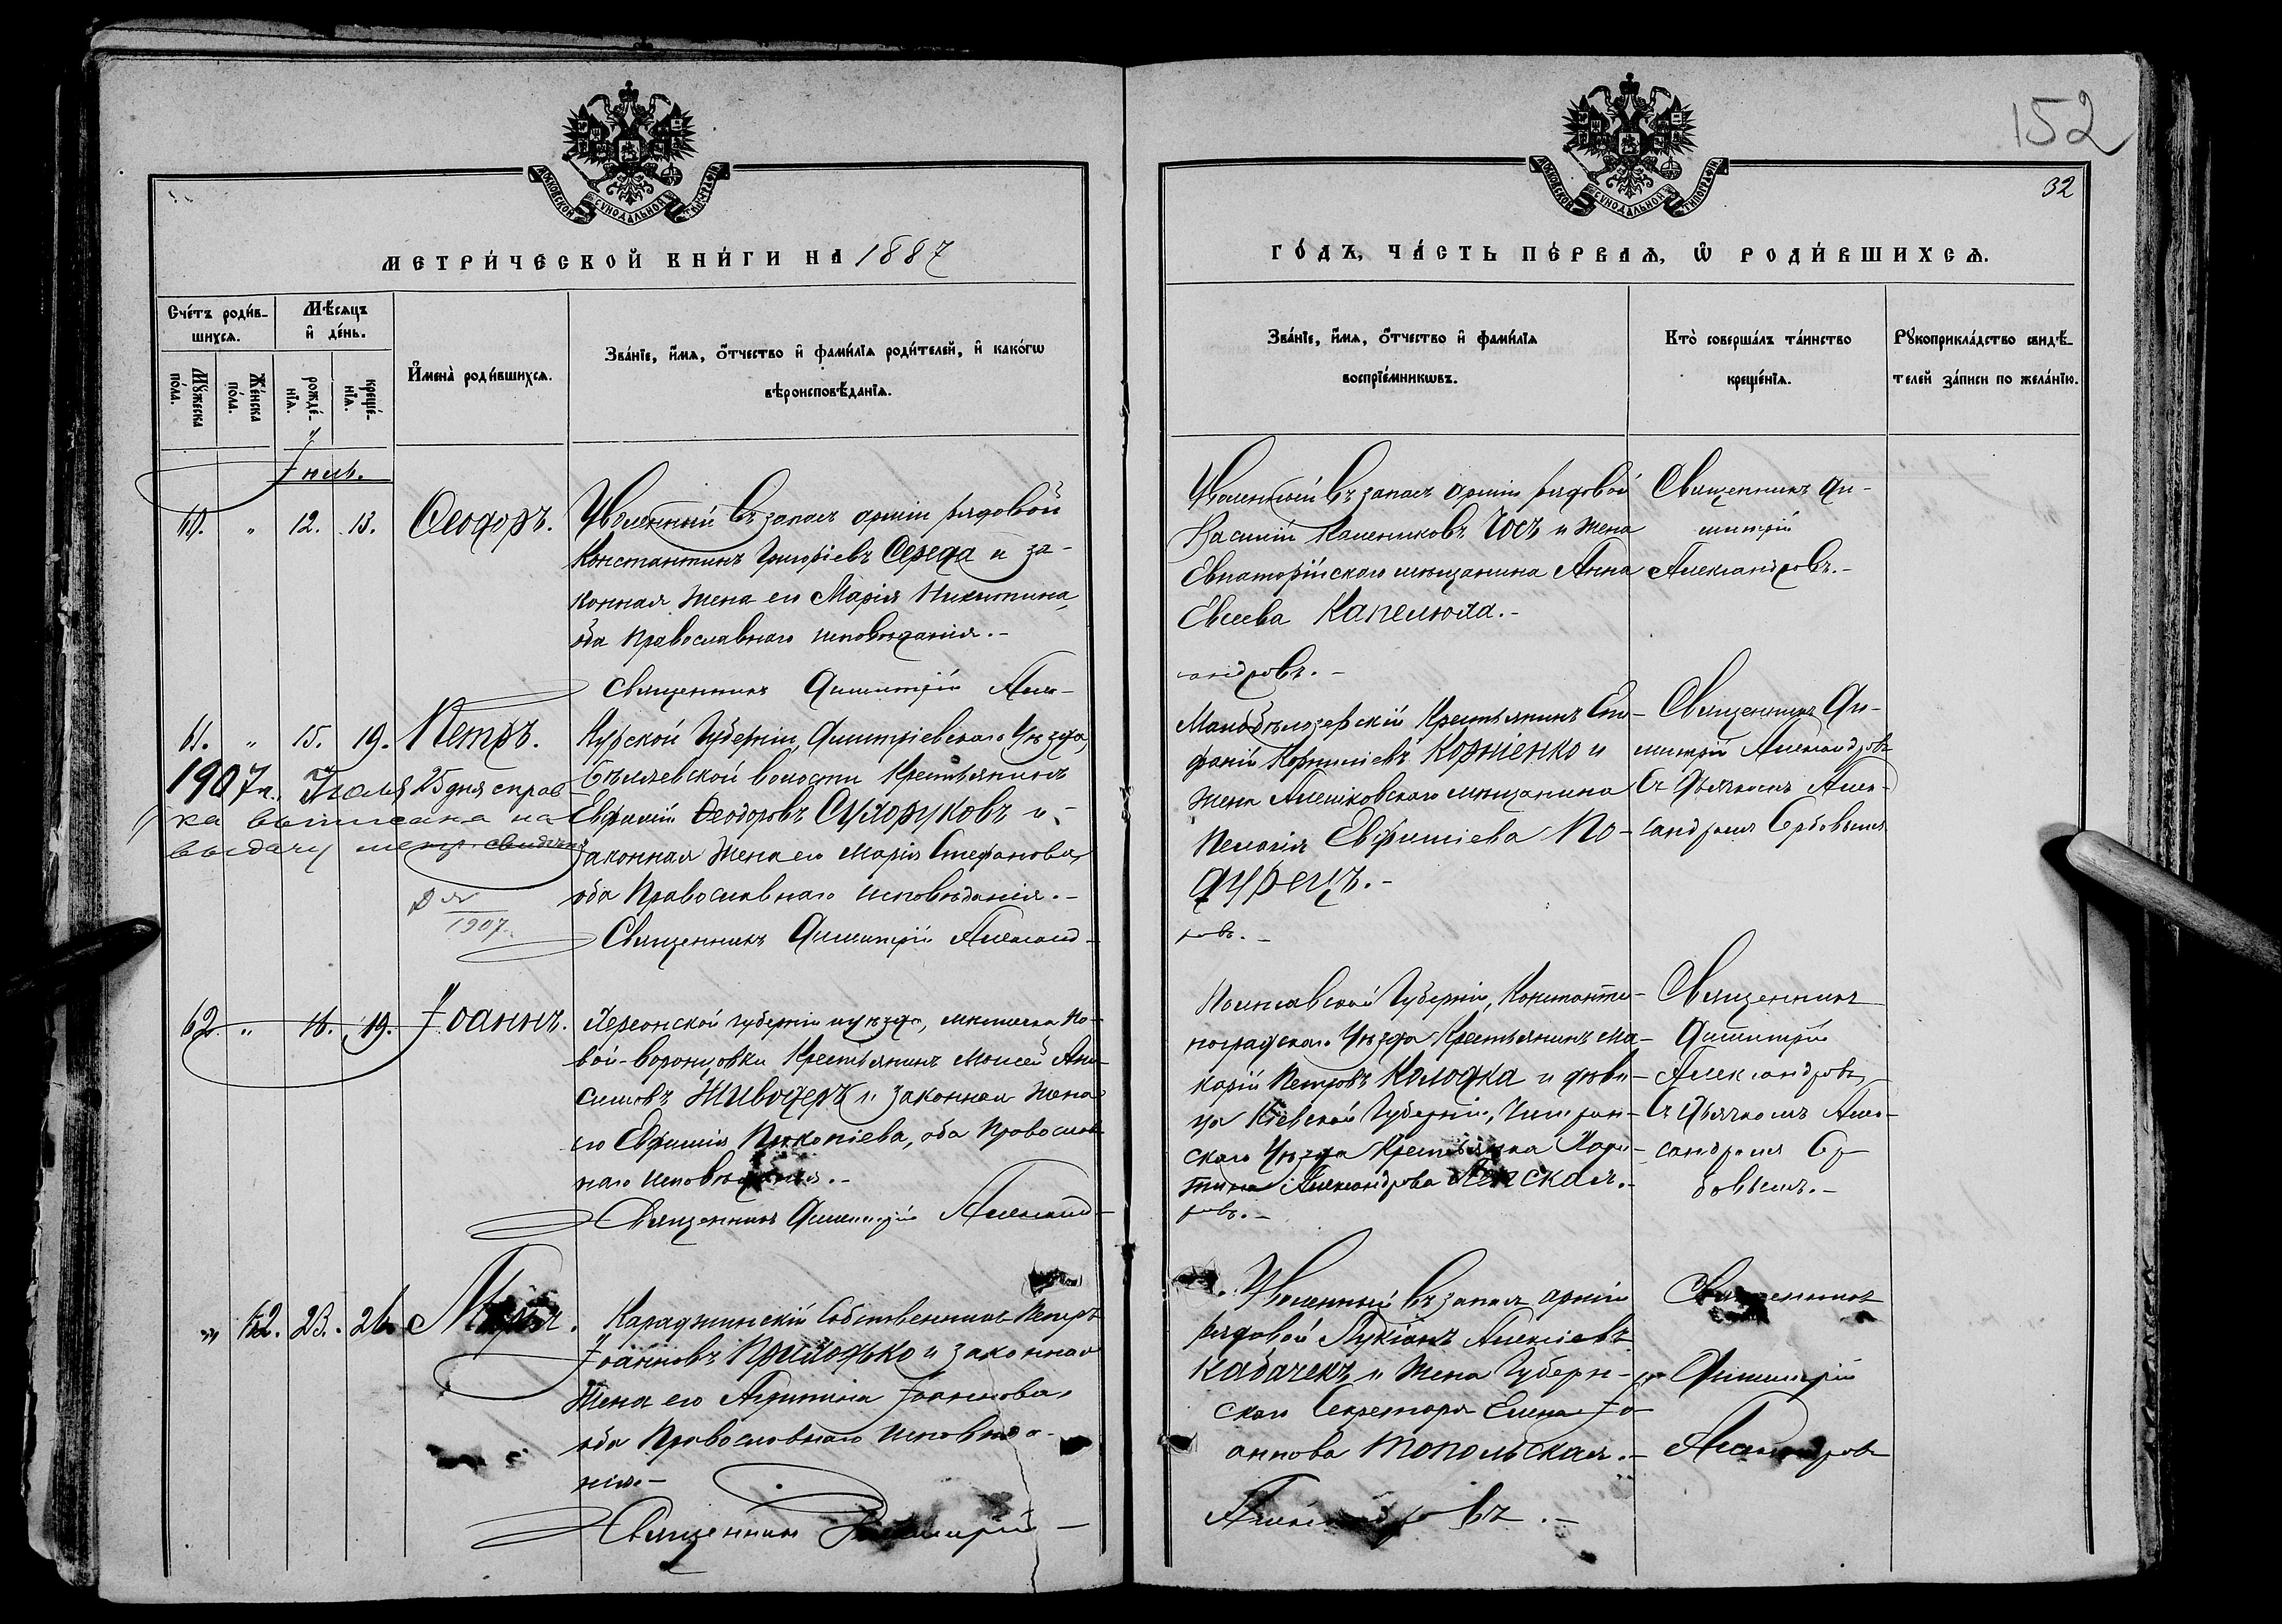 152
32
МОСКОВСКОЙ СУНОДАЛЬНОЙ ТИПОГРАФІИ
МОСКОВСКОЙ СУНОДАЛЬНОЙ ТИПОГРАФІИ
МЕТРИ́ЧЕСКОЙ КНИ́ГИ НА 1887
ГО́ДЪ, ЧА́СТЬ ПЕ́РВАЯ, Ѽ РОДИ́ВШИХСЯ.
Сче́тъ роди́в-
шихся.
Му́жеска по́ла.
Же́нска по́ла.
Мѣ́сяцъ
и де́нь.
рожде́-нія.
креще́-нія.
Имена̀ роди́вшихся.
Зва́ніе, и́мя, о́тчество и фами́лія роди́телей, и како́гѡ
вѣроисповѣ́данія.
Зва́ніе, и́мя, о́тчество и фами́лія
воспріе́мникѡвъ.
Кто̀ соверша́лъ та́инство
креще́нія.
Рꙋкоприкла́дство свидѣ́-
телей за́писи по жела́нію.
Іюнь.
60. " 12. 13. Ѳеодоръ.
Уволенный въ запасъ арміи рядовой
Константинъ Григоріевъ Середа и за-
конная жена его Марія Никитина,
оба Православнаго исповѣданія.-
Священникъ Димитрій Алек-
Уволенный въ запасъ арміи рядовой
Василій Калениковъ Госъ и жена
Евпаторійскаго мѣщанина Анна
Евсеева Капелюха.-
сандровъ.-
Священникъ Ди-
митрій
Александровъ.-
61. " 15. 19. Петръ.
1907 г. Іюля 25 дня справ-
ка выписана на
выдачу метр. свидѣт.
1907.
Курской Губерніи, Димитріевскаго Уѣзда,
волости Крестьянинъ
Евфимій Ѳеодоровъ Сухоруковъ и
законная жена его Марія Стефанова,
оба Православнаго исповѣданія.-
Священникъ Димитрій Александ-
Малобѣлозерскій Крестьянинъ Епи-
фаній Корниліевъ Корніенко и
жена Алешковскаго мѣщанина
Пелагія Евфиміева По-
дурецъ.-
ровъ.-
Священникъ Ди-
митрій Александровъ
Съ Дьячкомъ Алек-
сандромъ Сербовымъ
62. " 16. 19. Іоаннъ.
Херсонской губерніи и уѣзда, мѣстечка Но-
вой-Воронцовки Крестьянинъ Моисей Ани-
симовъ Живодеръ и законная жена
его Евфимія Прокопіева, оба Православ-
наго исповѣданія.-
Священникъ Димитрій Александ-
Полтавской Губерніи, Константи-
ноградскаго Уѣзда Крестьянинъ Ма-
карій Петровъ Колодка и дѣви-
ца Кіевской Губерніи, Чигирин-
скаго Уѣзда Крестьянка Хари-
тина Александрова
ровъ.-
Священникъ
Димитрій
Александровъ
Съ Дьячкомъ Алек-
сандромъ Сер-
бовымъ.-
" 52. 23. 26. Марѳа.
Караджинскій Собственникъ Петръ
Іоанновъ Приходько и законная
жена его Агрипина Іоаннова,
оба Православнаго исповѣда-
нія.-
Священникъ Димитрій
Уволенный въ запасъ арміи
рядовой Лукіанъ Алексіевъ
Кабачекъ и жена Губерн-
скаго Секретаря Елена Іо-
аннова Топольская.-
Александровъ.-
Священникъ
Димитрій
Александровъ